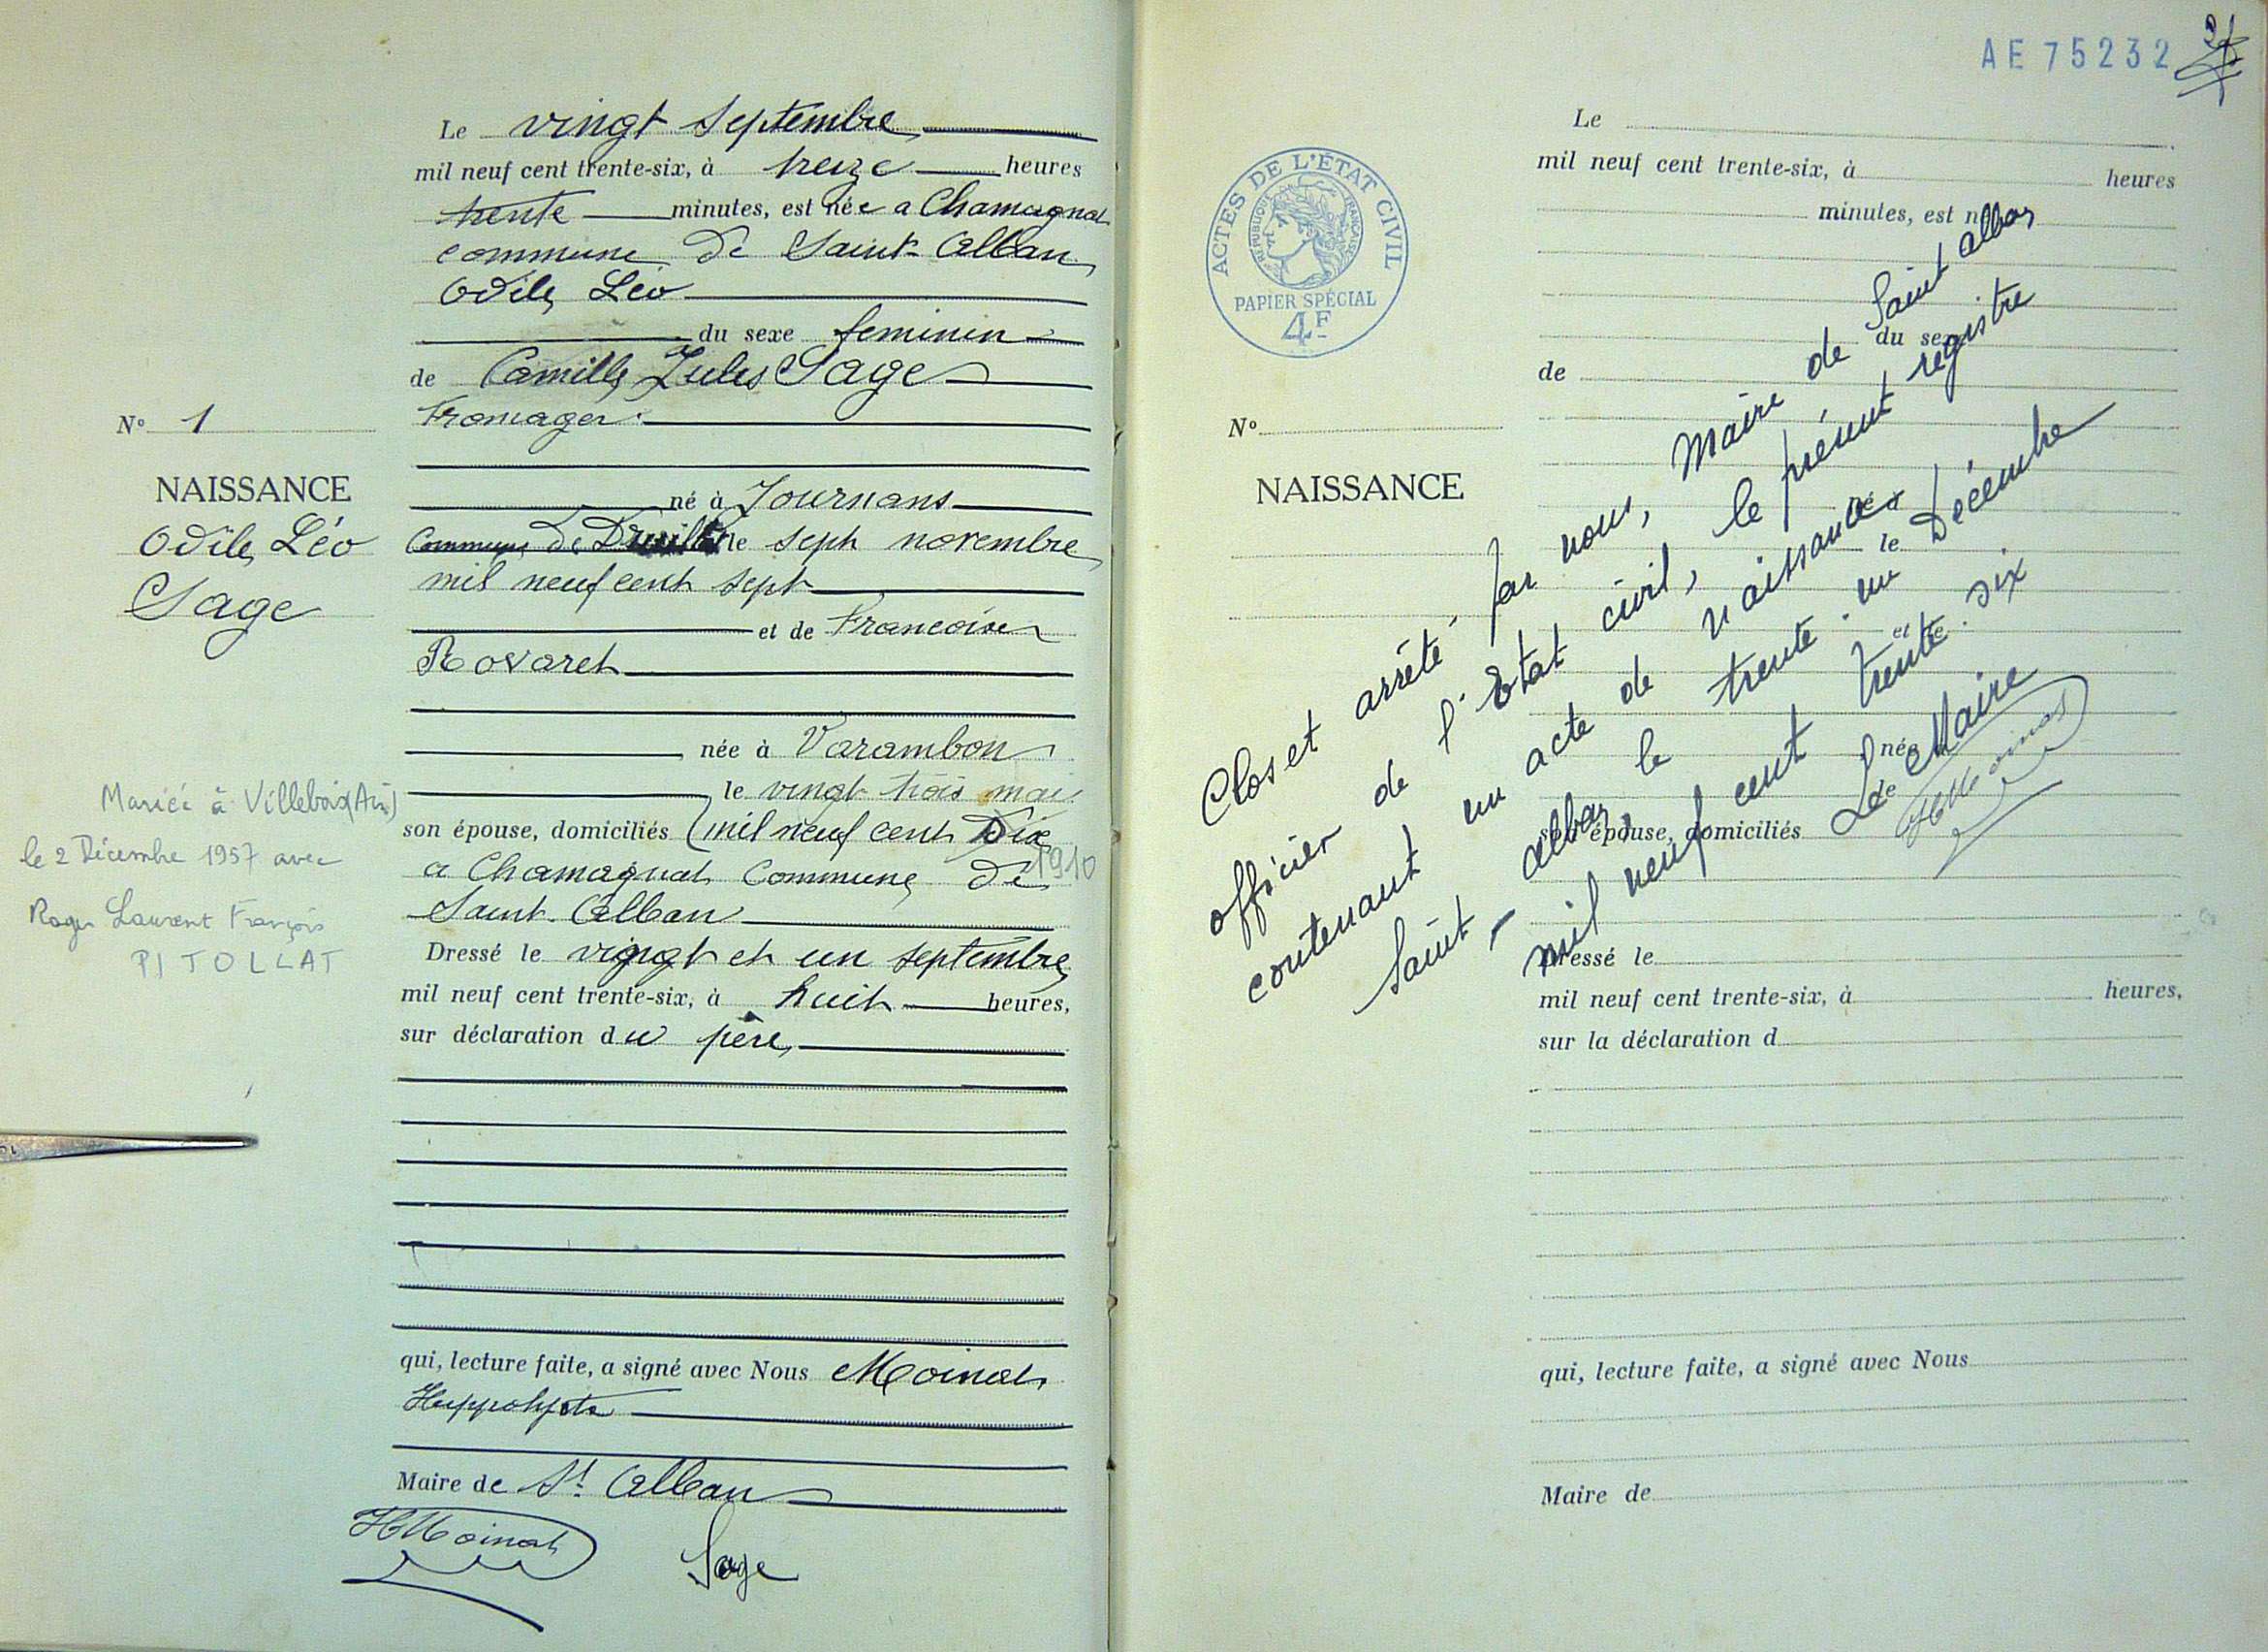 Le vingt septembre
mil neuf cent trente-six, à treize heures
trente minutes, est née a Chamagnat
commune de Saint-Alban
Odile Léo
du sexe feminin
de Camille Jules Sage
Fromager
N° 1
NAISSANCE
Odile Léo
Sage
né à Journans
Commune de le sept novembre
mil neuf cent sept
et de Francoise
Rovaret
née à Varambon
le vingt trois mai
son épouse, domiciliés (mil neuf cent Dix
1910
a Chamagnat Commune de
Saint-Alban
Mariée à Villebois (Ain)
le 2 Décembre 1957 avec
Roger Laurent François
PITOLLAT
Dressé le vingt et un septembre
mil neuf cent trente-six, à huit heures,
sur déclaration du père
qui, lecture faite, a signé avec Nous Moinat
Hyppolyte
Maire de St Alban
HMoinat
Sage
AE 75232
21
ACTES DE L'ÉTAT CIVIL
RÉPUBLIQUE FRANÇAISE
PAPIER SPÉCIAL
4F
Le
mil neuf cent trente-six, à heures
minutes, est n
du sexe
de
N°
NAISSANCE
né à
le
et de
née à
le
son épouse, domiciliés
Dressé le
mil neuf cent trente-six, à heures,
sur la déclaration d
qui, lecture faite, a signé avec Nous
Maire de
Clos et arrêté par nous, Maire de Saint Alban
officier de l'Etat civil, le présent registre
contenant un acte de naissance
Saint-Alban, le trente-un Décembre
mil neuf cent trente six
Le Maire
HMoinat